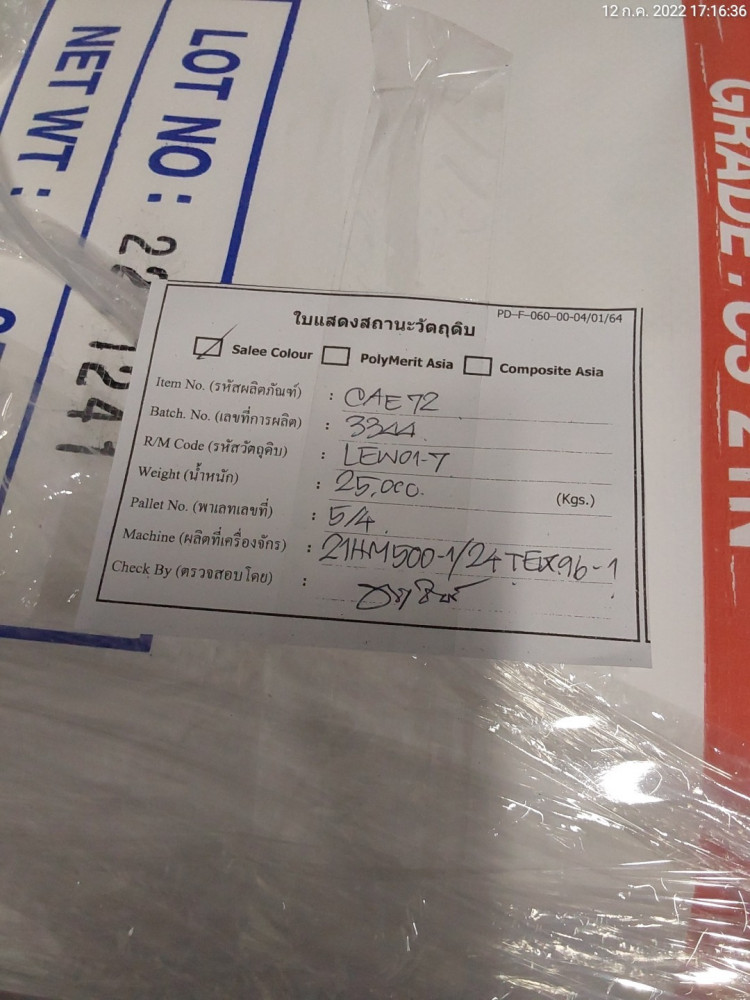 12 ก.ค. 2022 17:16:36
LOT NO :
NET WT :
1241
GRADE :
PD-F-060-00-04/01/64
ใบแสดงสถานะวัตถุดิบ
Salee Colour PolyMerit Asia Composite Asia
Item No. (รหัสผลิตภัณฑ์) : CAE72
Batch. No. (เลขที่การผลิต) : 3344
R/M Code (รหัสวัตถุดิบ) : LEW01-7
Weight (น้ำหนัก) : 25,000. (Kgs.)
Pallet No. (พาเลทเลขที่) : 5/4
Machine (ผลิตที่เครื่องจักร) : 21HM500-1/24TEX96-1
Check By (ตรวจสอบโดย) :